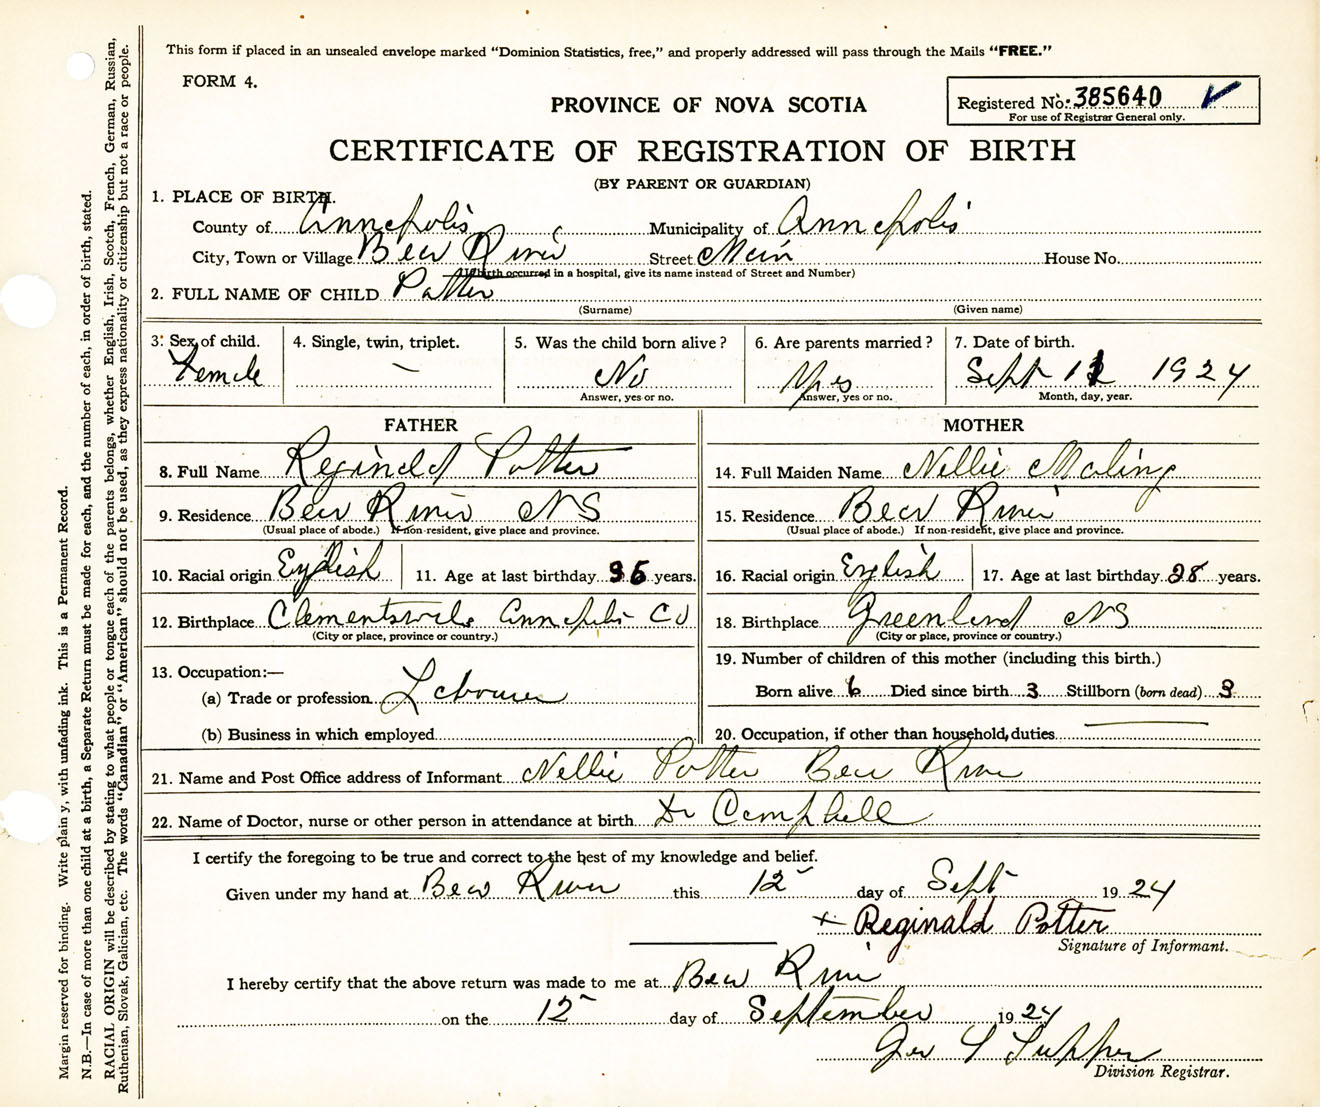 This form if placed in an unsealed envelope marked "Dominion Statistics, free," and properly addressed will pass through the Mails "FREE."
FORM 4.
Registered No. 385640 ✓
For use of Registrar General only.
PROVINCE OF NOVA SCOTIA
CERTIFICATE OF REGISTRATION OF BIRTH
(BY PARENT OR GUARDIAN)
1. PLACE OF BIRTH.
County of Annapolis Municipality of Annapolis
City, Town or Village Bear River Street Main House No.
(If birth occurred in a hospital, give its name instead of Street and Number)
2. FULL NAME OF CHILD Potter
(Surname) (Given name)
3. Sex of child. 4. Single, twin, triplet. 5. Was the child born alive? 6. Are parents married? 7. Date of birth.
Female — No Yes Sept 12 1924
Answer, yes or no. Answer, yes or no. Month, day, year.
FATHER
8. Full Name Reginald Potter
9. Residence Bear River NS
(Usual place of abode.) If non-resident, give place and province.
10. Racial origin English 11. Age at last birthday 36 years.
12. Birthplace Clementsvale Annapolis Co
(City or place, province or country.)
13. Occupation:—
(a) Trade or profession Labourer
(b) Business in which employed
MOTHER
14. Full Maiden Name Nellie Maling
15. Residence Bear River
(Usual place of abode.) If non-resident, give place and province.
16. Racial origin English 17. Age at last birthday 28 years.
18. Birthplace Greenland NS
(City or place, province or country.)
19. Number of children of this mother (including this birth.)
Born alive 6 Died since birth 3 Stillborn (born dead) 3
20. Occupation, if other than household duties —
21. Name and Post Office address of Informant Nellie Potter Bear River
22. Name of Doctor, nurse or other person in attendance at birth Dr Campbell
I certify the foregoing to be true and correct to the best of my knowledge and belief.
Given under my hand at Bear River this 12 day of Sept 1924
x Reginald Potter
Signature of Informant.
I hereby certify that the above return was made to me at Bear River
on the 12 day of September 1924
Tupper
Division Registrar.
Margin reserved for binding. Write plainly, with unfading ink. This is a Permanent Record.
N.B.—In case of more than one child at a birth, a Separate Return must be made for each, and the number of each, in order of birth, stated.
RACIAL ORIGIN will be described by stating to what people or tongue each of the parents belongs, whether English, Irish, Scotch, French, German, Russian,
Ruthenian, Slovak, Galician, etc. The words "Canadian" or "American" should not be used, as they express nationality or citizenship but not a race or people.